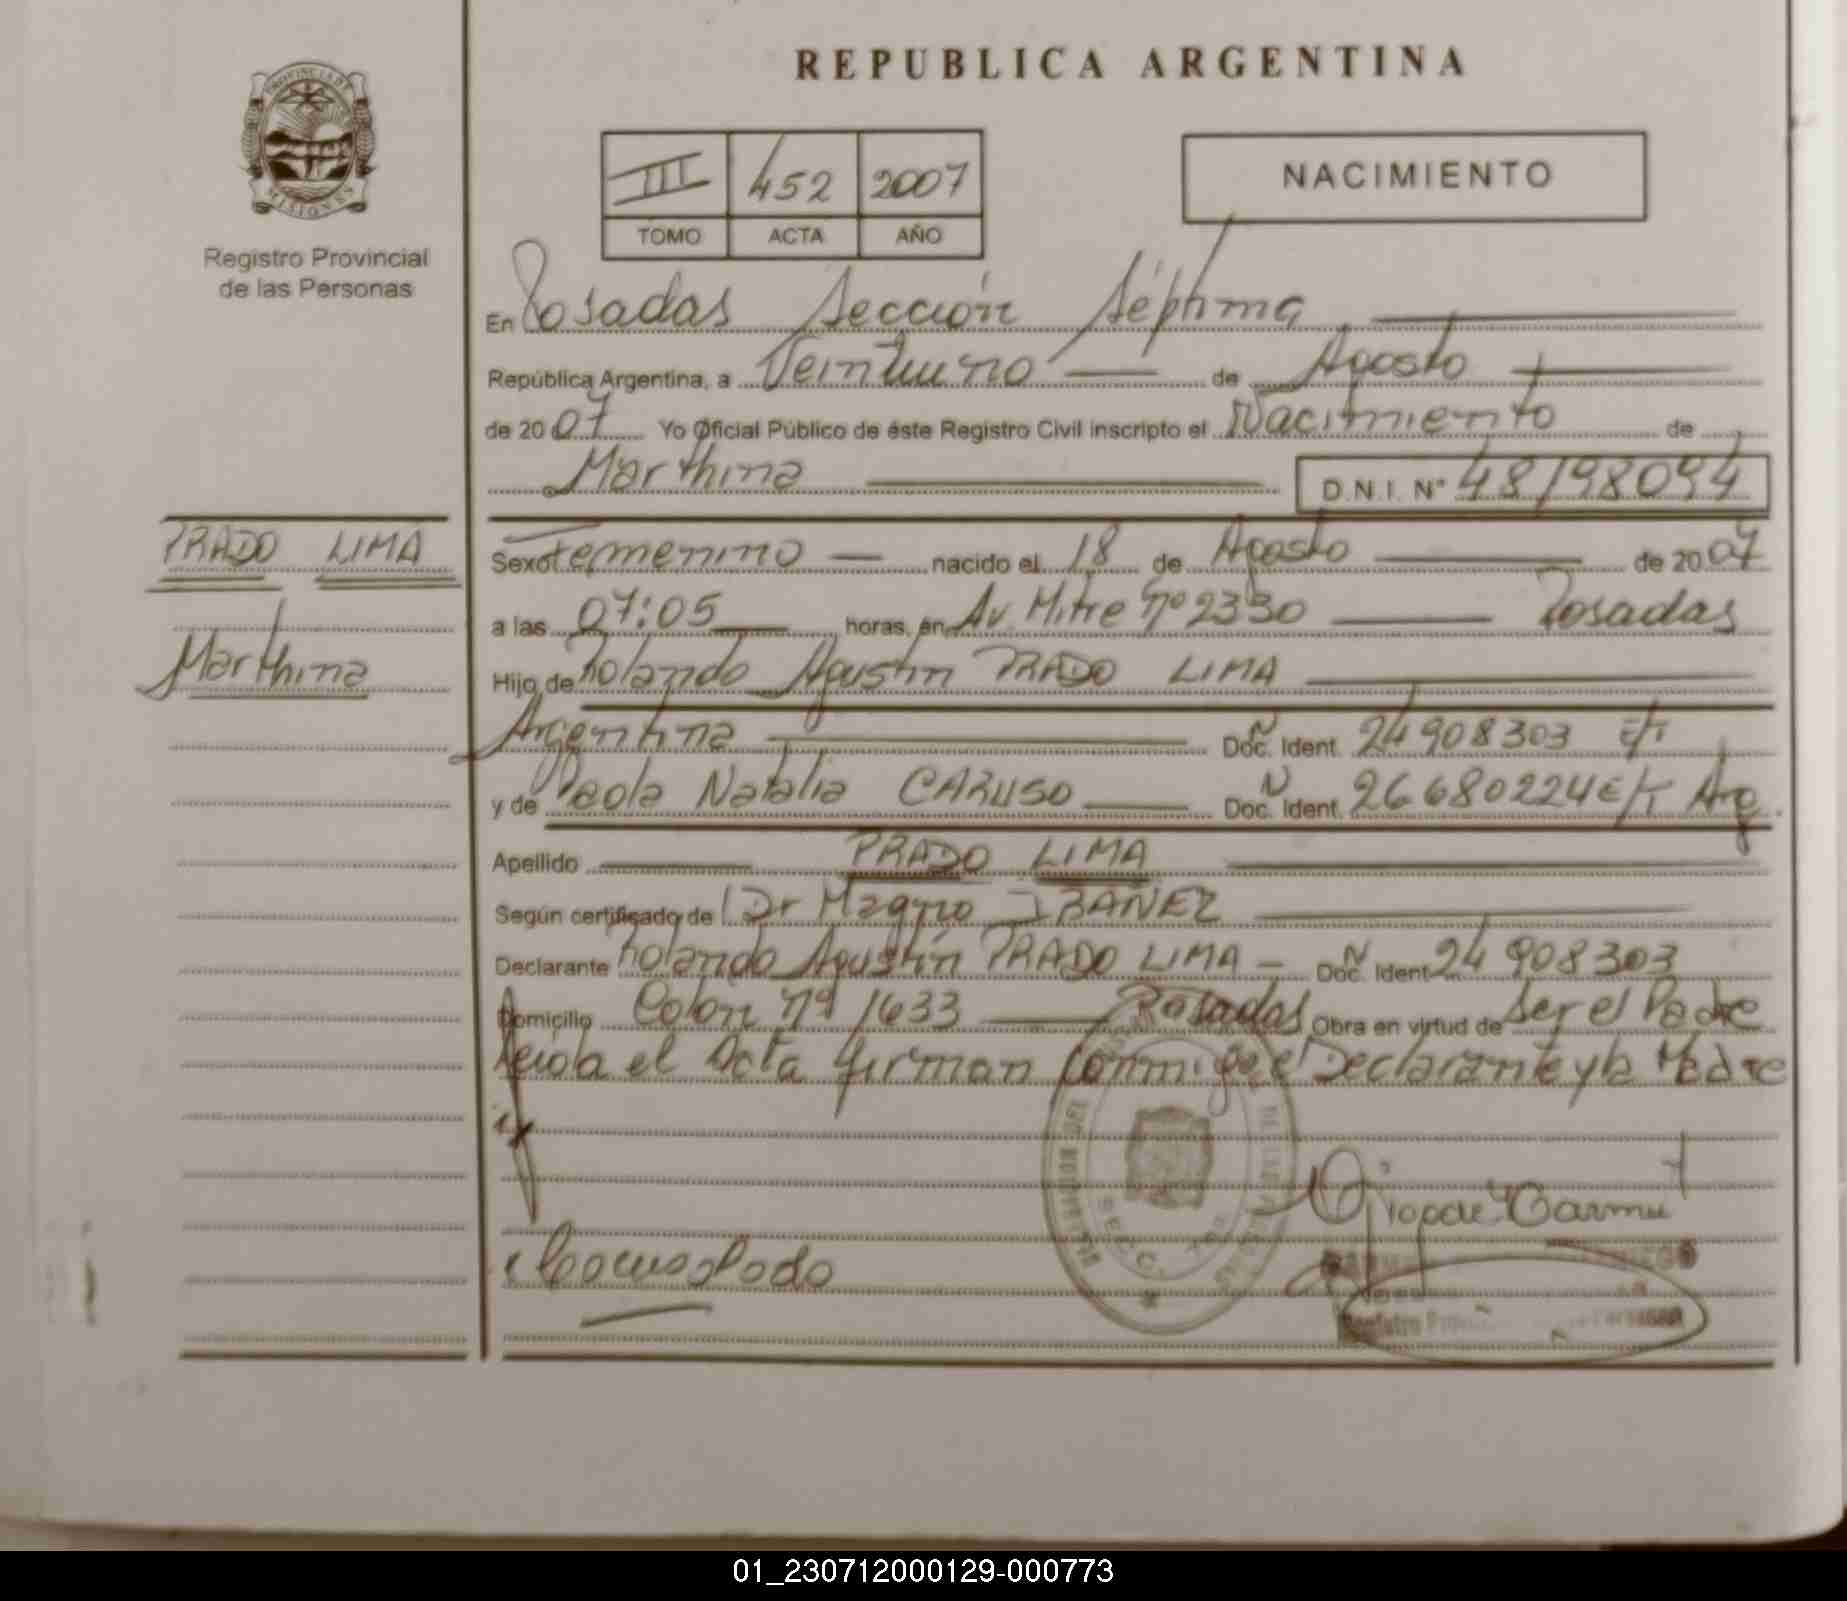 REPUBLICA ARGENTINA
PROVINCIA DE MISIONES
Registro Provincial
de las Personas
III 452 2007
TOMO ACTA AÑO
NACIMIENTO
En Posadas Sección Séptima
República Argentina, a Veintiuno de Agosto
de 2007 Yo Oficial Público de éste Registro Civil inscripto el Nacimiento de
Marthina D.N.I. Nº 48198094
PRADO LIMA
Marthina
Sexo Femenino nacido el 18 de Agosto de 2007
a las 07:05 horas, en Av. Mitre nº 2330 Posadas
Hijo de Rolando Agustín PRADO LIMA
Argentina Doc. Ident. 24908303 E/T
y de Paola Natalia CARUSO Doc. Ident. 26680224 E/T Arg.
Apellido PRADO LIMA
Según certificado de Dr Magno IBAÑEZ
Declarante Rolando Agustín PRADO LIMA - Doc. Ident. 24908303
Domicilio Colon nº 1633 Posadas Obra en virtud de Ser el Padre
Leida el Acta firman conmigo el Declarante y la Madre
SECC. 7
Registro
01_230712000129-000773